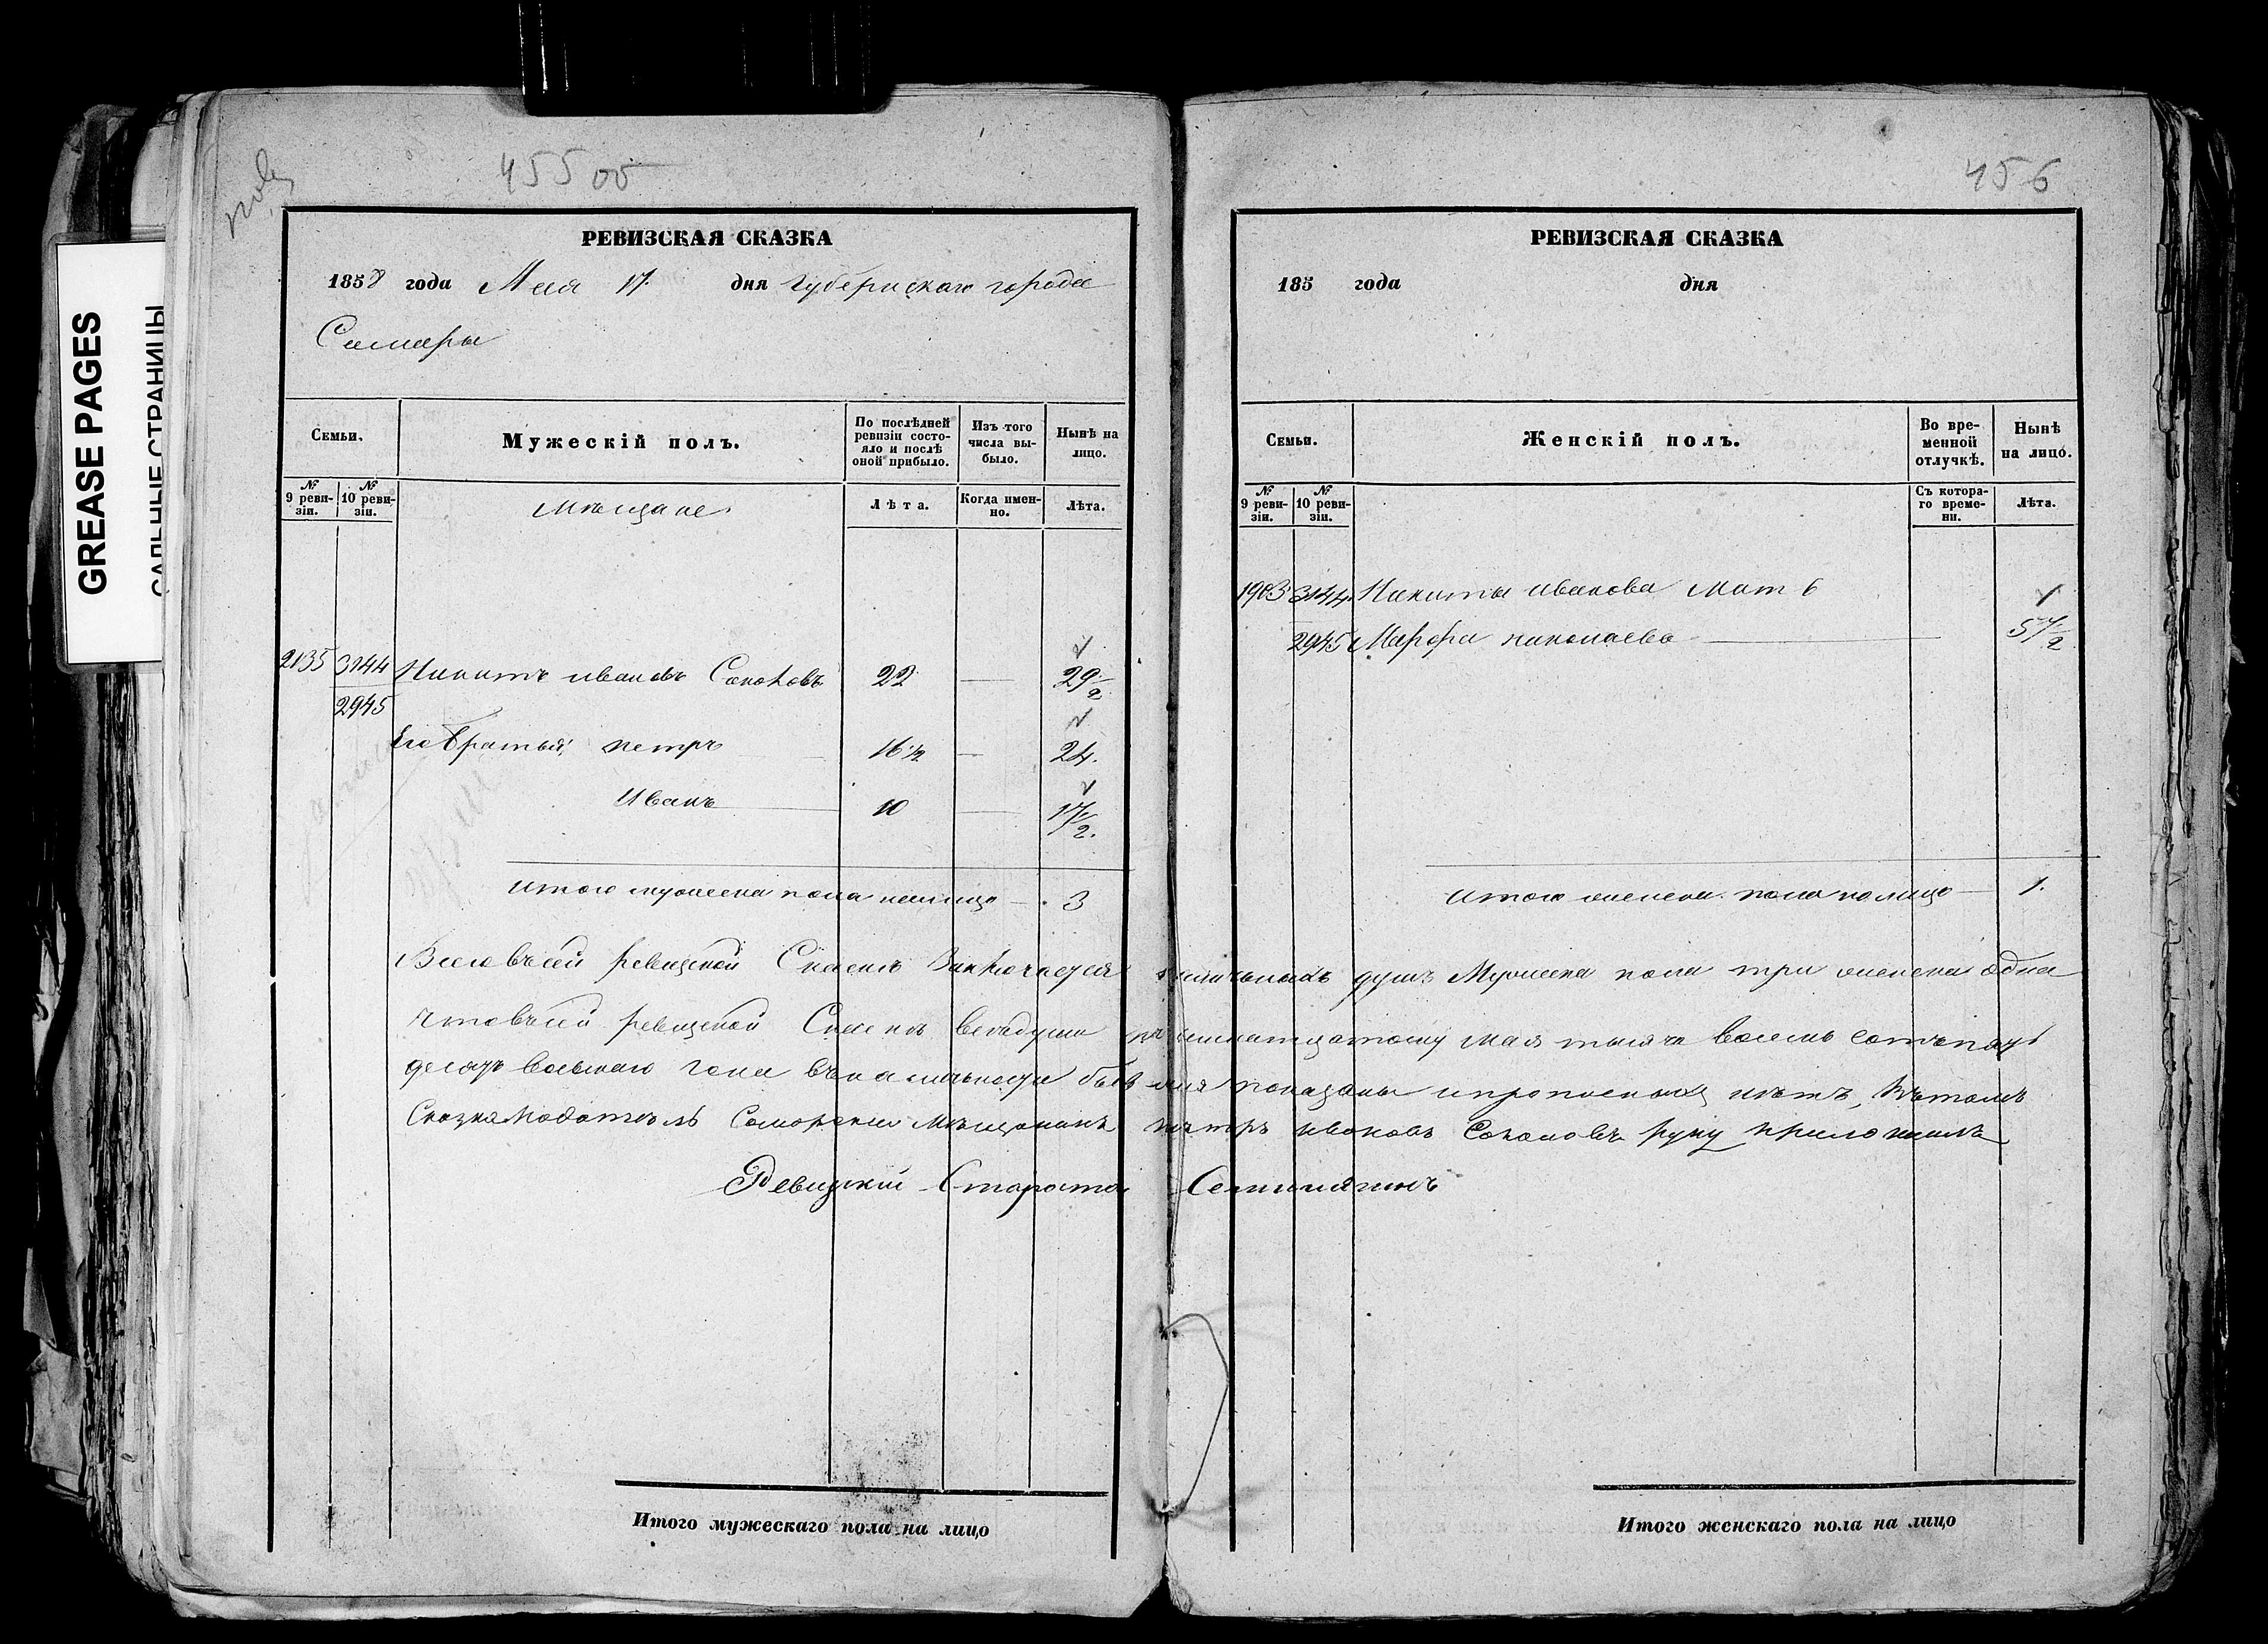 GREASE PAGES
САЛЬНЫЕ СТРАНИЦЫ
455 об
РЕВИЗСКАЯ СКАЗКА
1858 года Мая 17 дня Губернскаго города
Самары
Семьи.
Мужескій полъ.
По послѣдней ревизіи состояло и послѣ оной прибыло.
Изъ того числа выбыло.
Нынѣ на лицо.
№ 9 ревизіи.
№ 10 ревизіи.
Мѣщане
Лѣта.
Когда именно.
Лѣта.
2135 3144 Никита ивановъ Соколовъ 22 — 29 1/2
2945
Его Братья петръ 16 1/2 — 24.
Иванъ 10 — 17 1/2.
итого мужеска пола налицо — 3
456
РЕВИЗСКАЯ СКАЗКА
185 года дня
Семьи.
Женскій полъ.
Во временной отлучкѣ.
Нынѣ на лицо.
№ 9 ревизіи.
№ 10 ревизіи.
Съ котораго времени.
Лѣта.
1903 3144 Никиты иванова Мать
2945 Марфа николаева — 57 1/2
итого женска пола налицо — 1.
Всего въсей ревизской Сказкѣ Заключается наличныхъ душъ Мужеска пола три женска одна
Что въсей ревизской Сказкѣ всѣ души мая тысяча восемь сотъ пять
десятъ восьмаго года показаны и прописныхъ нѣтъ, Въ томъ
Сказкаподатель Самарскій Мѣщанинъ Петръ ивановъ Соколовъ руку приложилъ
Ревизскій Староста
Итого мужескаго пола на лицо
Итого женскаго пола на лицо